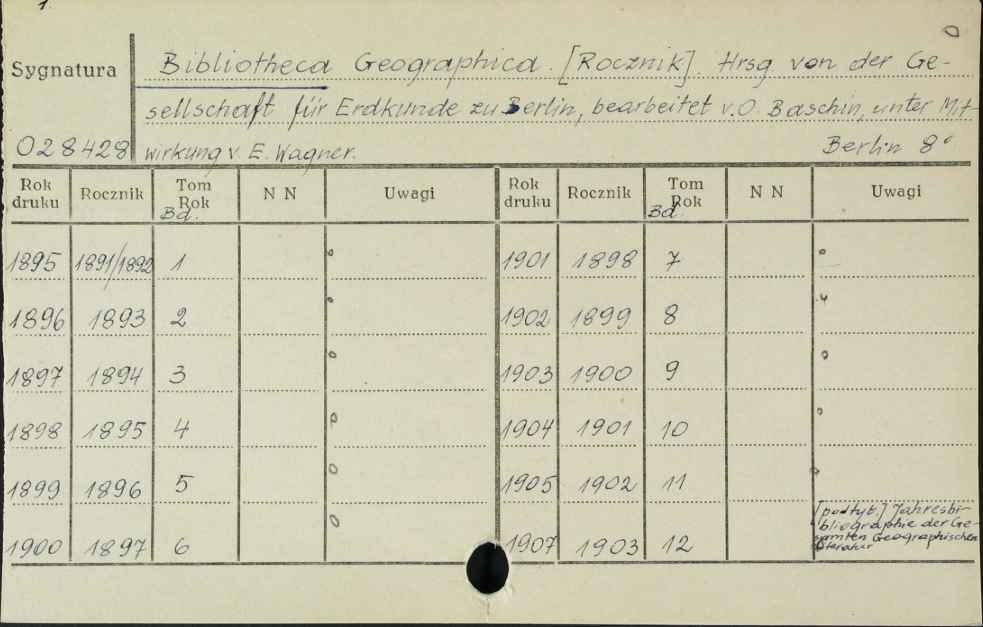 1.
Sygnatura
Bibliotheca Geographica. [Rocznik]. Hrsg von der Ge-
sellschaft für Erdkunde zu Berlin, bearbeitet v. O. Baschin, unter Mit
028428 wirkung v. E. Wagner. Berlin 8°
Rok druku Rocznik Tom Rok Bd. N N Uwagi Rok druku Rocznik Tom Rok Bd. N N Uwagi
1895 1891/1892 1 1901 1898 7
1896 1893 2 1902 1899 8
1897 1894 3 1903 1900 9
1898 1895 4 1904 1901 10
1899 1896 5 1905 1902 11
1900 1897 6 1907 1903 12 [podtyt.] Jahresbi-
bliographie der Ge-
samten Geographischen
Literatur